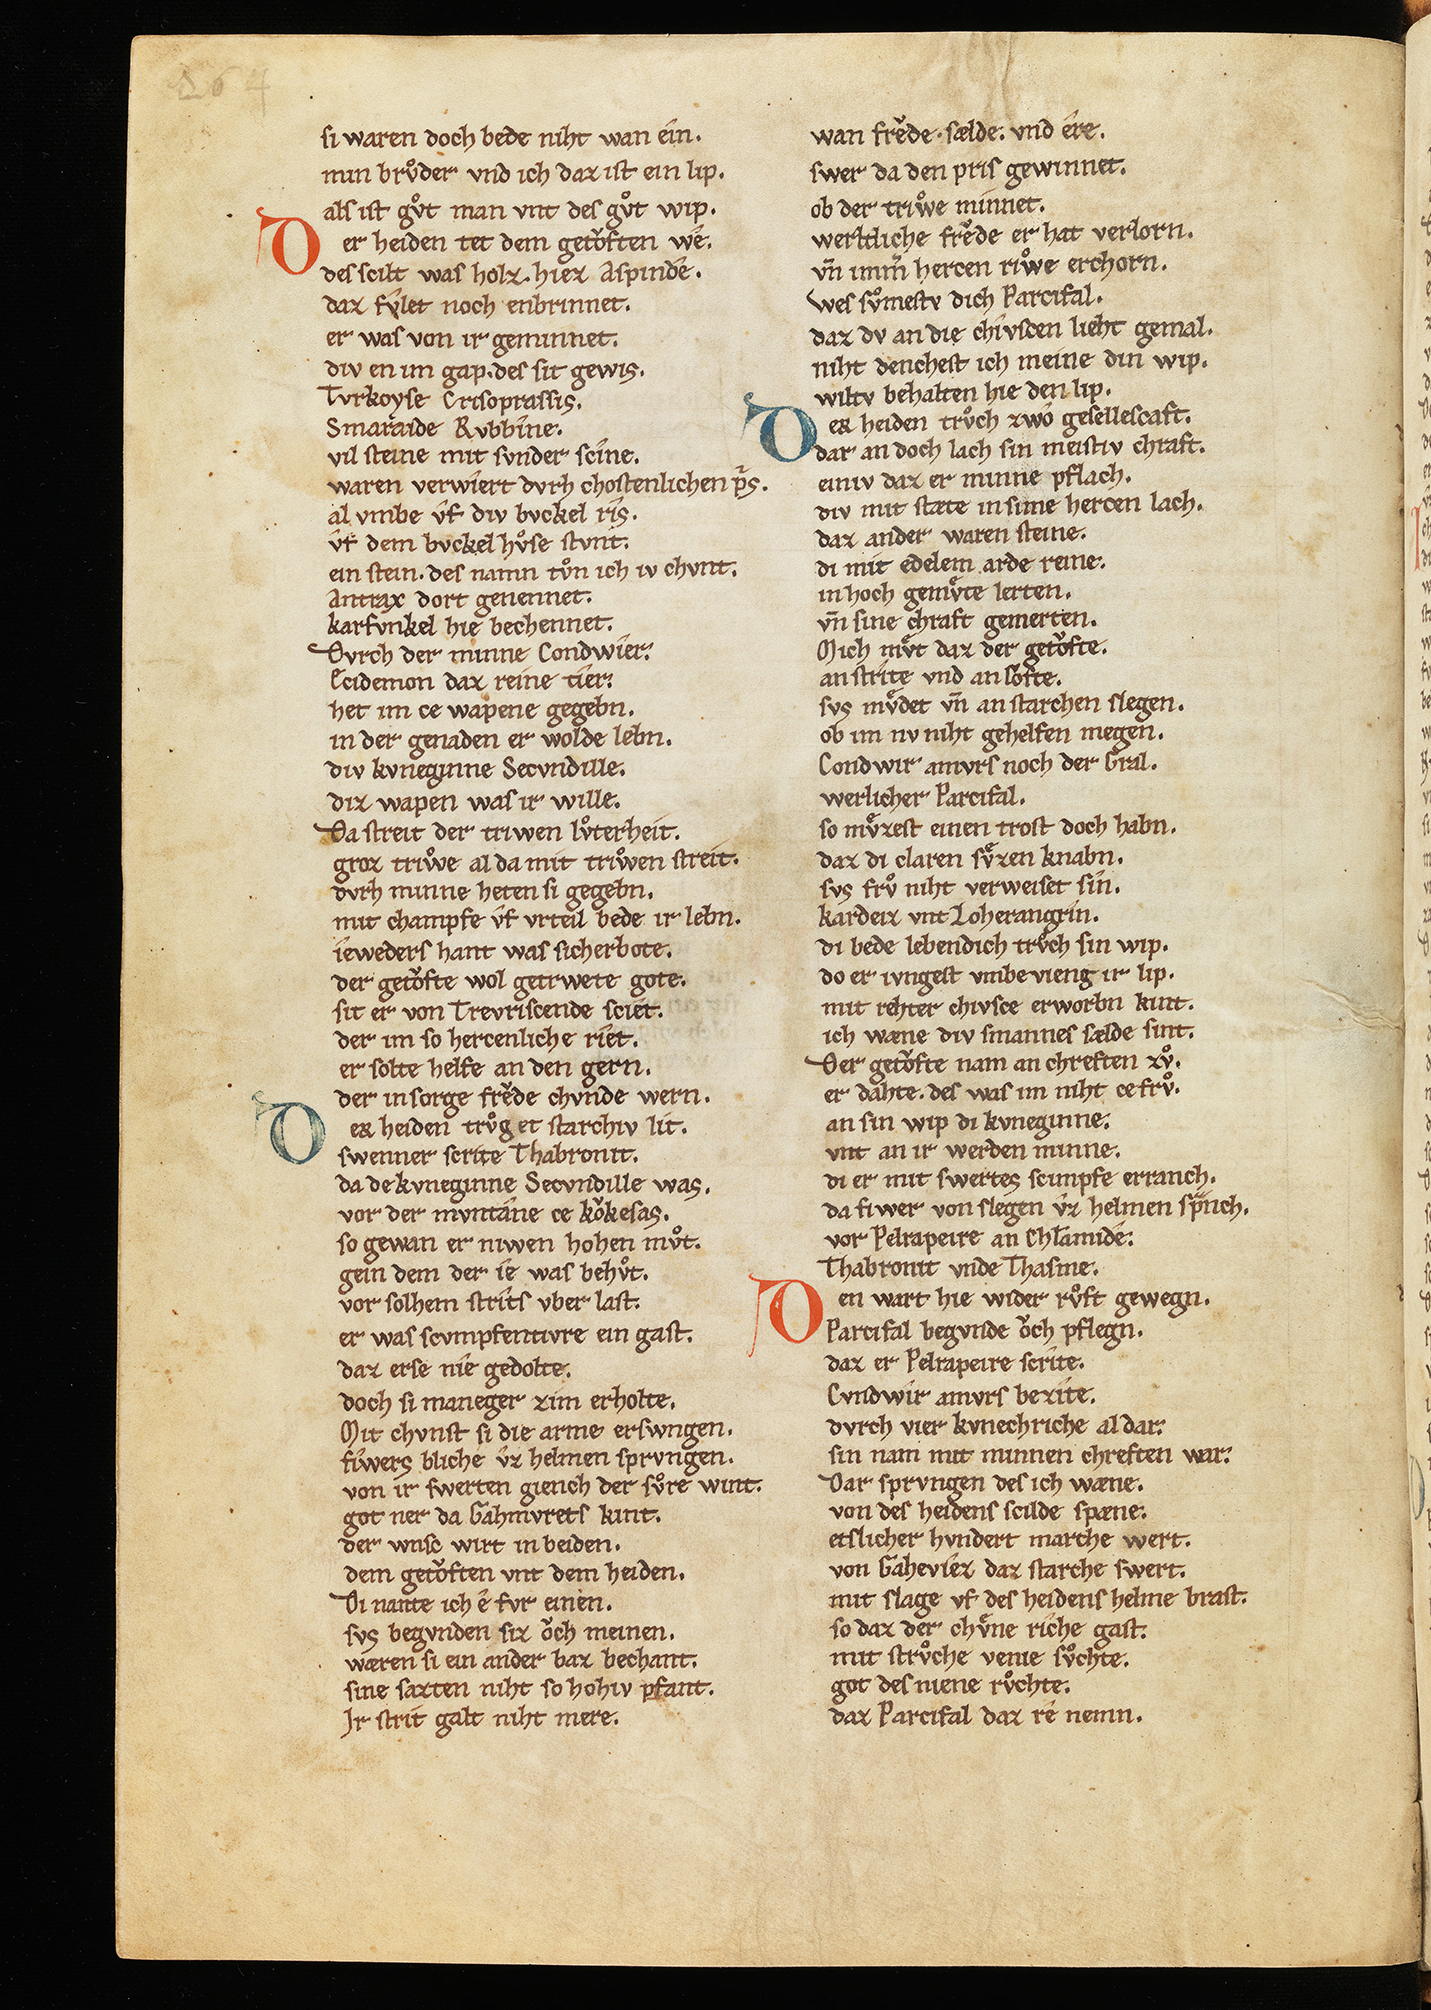 264
si waren doch bede niht wan ein.
min brv̊der vnd ich daz ist ein lip.
als ist gv̊t man vnt des gv̊t wip.
Der heiden tet dem getŏften wê.
des scilt was holz. hiez Aspindê.
daz fv̂let noch enbrinnet.
er was von ir geminnet.
div en im gap. des sit gewis.
Tvrkoyse Crisoprassis.
Smaraide Rvbbine.
vil steine mit svnder scîne.
waren verwiert dvrh chostenlichen p̄s.
al vmbe v̂f div bvckel ris.
v̂f dem bvckel hv̊se stvnt.
ein stein. des namn tv̊n ich iv chvnt.
Antrax dort genennet.
karfvnkel hie bechennet.
Dvrch der minne Condwier.
Ecidemon daz reine tier.
het im ce wapene gegebn.
in der genaden er wolde lebn.
div kvneginne Secvndille.
diz wapen was ir wille.
Da streit der triwen lv̊terheit.
groz triẘe al da mit triẘen streit.
dvrh minne heten si gegebn.
mit champfe v̂f vrteil bede ir lebn.
ieweders hant was sicherbote.
der getŏfte wol getrwete gote.
sit er von Trevriscende sciet.
der im so hercenliche riet.
er solte helfe an den gern.
der in sorge frĕde chvnde wern.
Der heiden trv̊g et starchiv lit.
swenner scrite Thabronit.
da de kvneginne Secvndille was.
vor der mvntâne ce kŏkesas.
so gewan er niwen hohen mv̊t.
gein dem der ie was behv̊t.
vor solhem strîts vber last.
er was scvmpfentivre ein gast.
daz erse nie gedolte.
doch si maneger zim erholte.
Mit chvnst si die arme erswngen.
fiwers bliche v̂z helmen sprvngen.
von ir swerten giench der sv̊re wint.
got ner da Gahmvrets kint.
der wnsc wirt in beiden.
dem getŏften vnt dem heiden.
Di nante ich ê fvr einen.
svs begvnden siz ŏch meinen.
wæren si ein ander baz bechant.
sine sazten niht so hohiv pfant.
Ir strit galt niht mere.
wan frĕde. sælde. vnd ere.
swer da den pris gewinnet.
ob der triẘe minnet.
werltliche frĕde er hat verlorn.
vn̄ imm̄ hercen riẘe erchorn.
Wes sv̊mestv dich Parcifal.
daz dv an die chivscen lieht gemal.
niht denchest ich meine din wip.
wiltv behalten hie den lip.
Der heiden trv̊ch zwô gesellescaft.
dar an doch lach sin meistiv chraft.
einiv daz er minne pflach.
div mit stæte in sime hercen lach.
daz ander waren steine.
di mit edelem arde reine.
in hoch gemv̊te lerten.
vn̄ sine chraft gemerten.
Mich mv̊t daz der getŏfte.
an strite vnd an lŏfte.
svs mv̊det vn̄ an starchen slegen.
ob im nv niht gehelfen megen.
Condwir amvrs noch der Gral.
werlicher Parcifal.
so mv̊zest einen trost doch habn.
daz di claren sv̊zen knabn.
svs frv̊ niht verweiset sin.
kardeiz vnt Loherangrin.
di bede lebendich trv̊ch sin wip.
do er ivngest vmbe vieng ir lip.
mit rehter chivsce erworbn kint.
ich wæne div smannes sælde sint.
Der getŏfte nam an chreften zv̊.
er dahte. des was im niht ce frv̊.
an sin wip di kvneginne.
vnt an ir werden minne.
di er mit swertes scimpfe erranch.
da fiwer von slegen v̂z helmen spranch.
vor Pelrapeire an Chlamide.
Thabronit vnde Thasme.
Den wart hie wider rv̊ft gewegn.
Parcifal begvnde ŏch pflegn.
daz er Pelrapeire scrite.
Cvndwir amvrs bezite.
dvrch vier kvnechriche al dar.
sin nam mit minnen chreften war.
Dar sprvngen des ich wæne.
von des heidens scilde spæne.
etslicher hvndert marche wert.
von Gahevîez daz starche swert.
mit slage vf des heidens helme brast.
so daz der chv̊ne riche gast.
mit strv̊che venie sv̊chte.
got des niene rv̊chte.
daz Parcifal daz rê nemn.